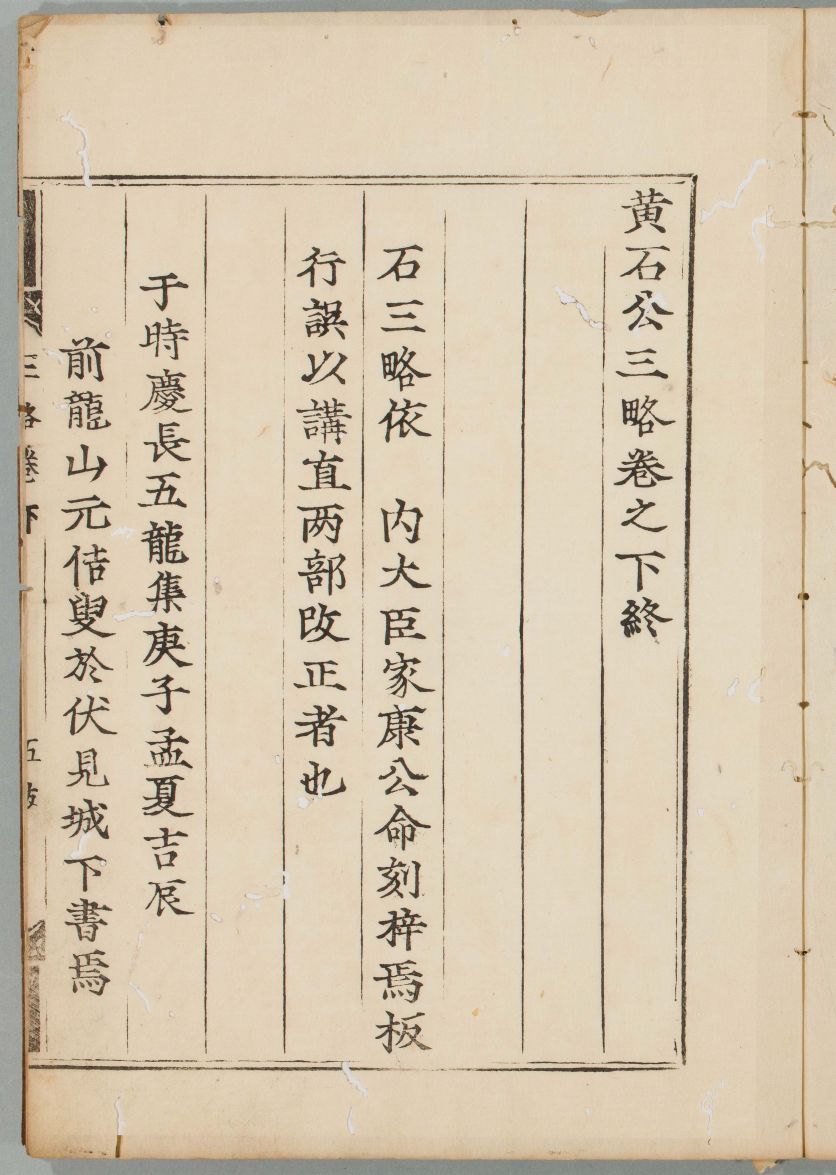 黄石公三略卷之下終
石三略依　内大臣家康公命刻梓焉板
行誤以講直两部改正者也
于時慶長五龍集庚子孟夏吉辰
前龍山元佶叟於伏見城下書焉
三略卷下